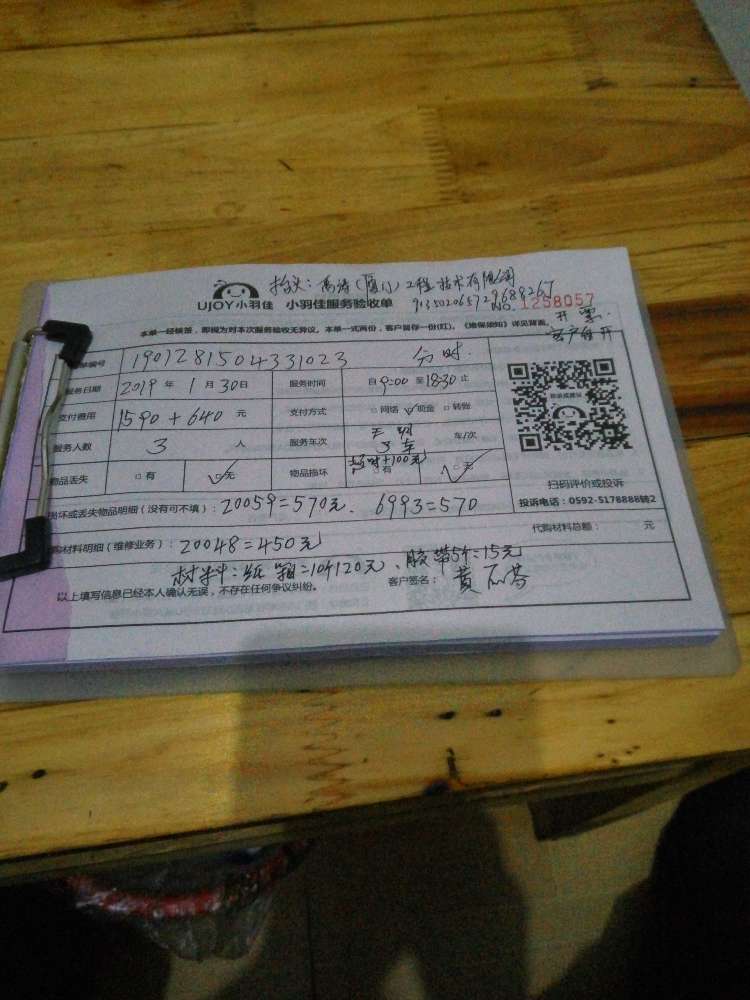 抬头:高诗(厦门)工程技术有限公司
UJOY小羽佳 小羽佳服务验收单
913502065729689267
NO. 1258057
本单一经填签,即视为对本次服务验收无异议。本单一式两份,客户留存一份(红)。《维保须知》详见背面。
开票:
客户自开
单编号 1901281504331023 分时
服务日期 2019 年 1 月 30 日 服务时间 自 9:00 至 18:30 止
支付费用 1590+640 元 支付方式 网络 现金 转账
服务人数 3 人 服务车次 3车 车/次
超时+100元
物品丢失 有 无 物品损坏 有 无
扫码评价或投诉
投诉电话:0592-5178888转2
损坏或丢失物品明细(没有可不填):20059=570元、6993=570
代购材料总额: 元
购材料明细(维修业务):20048=450元
材料:纸箱=10个120元、胶带5个=15元
以上填写信息已经本人确认无误,不存在任何争议纠纷。 客户签名: